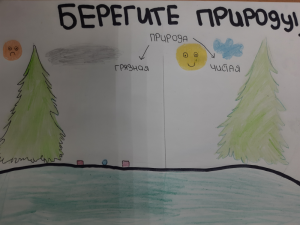 БЕРЕГИТЕ ПРИРОДУ!
ПРИРОДА
ГРЯЗНАЯ ЧИСТАЯ